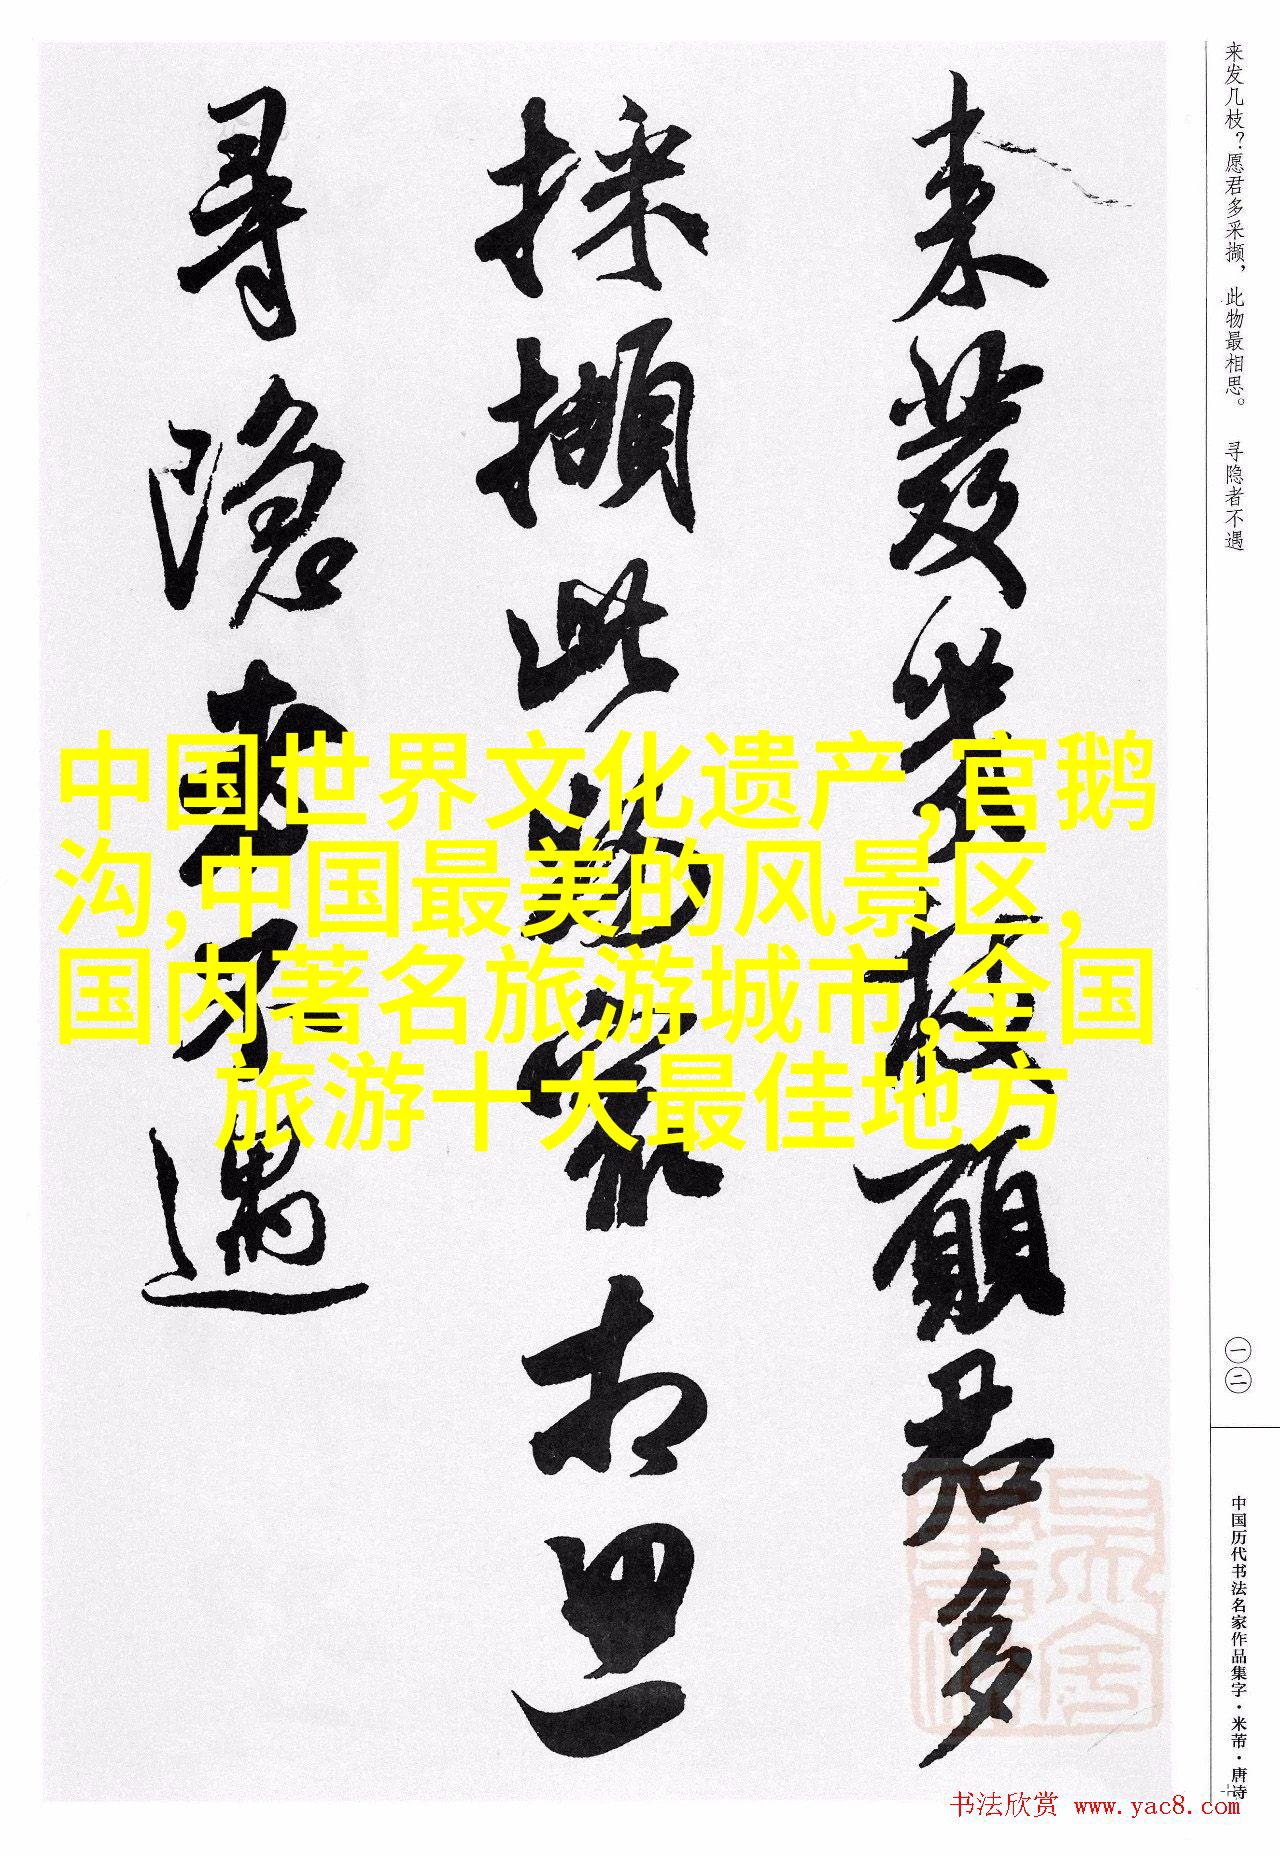 来发几枝？愿君多采撷，此物最相思。 寻隐者不遇
来發几枝願君多
採擷此物最相思
尋隐者不遇
中国世界文化遗产,官鹅
沟,中国最美的风景区,
国内著名旅游城市,全国
旅游十大最佳地方
一二
中国历代书法名家作品集字·米芾·唐诗
书法欣赏 www.yac8.com